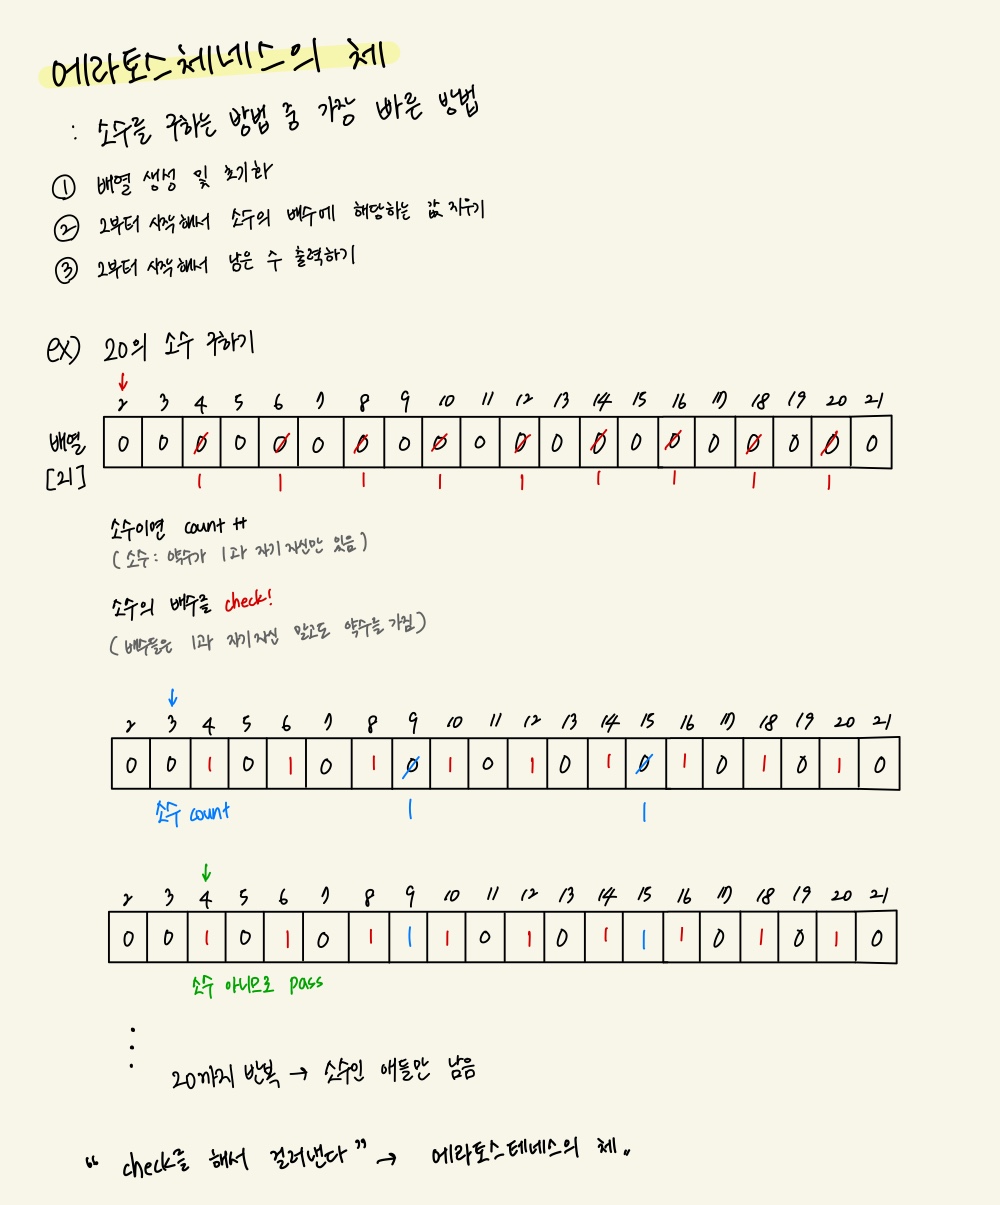 에라토스체네스의 체
: 소수를 구하는 방법 중 가장 빠른 방법
① 배열 생성 및 초기화
② 2부터 시작해서 소수의 배수에 해당하는 값 지우기
③ 2부터 시작해서 남은 수 출력하기
ex) 20의 소수 구하기
↓
2 3 4 5 6 7 8 9 10 11 12 13 14 15 16 17 18 19 20 21
배열 0 0 0 0 0 0 0 0 0 0 0 0 0 0 0 0 0 0 0 0
[21] 1 1 1 1 1 1 1 1 1
소수이면 count ++
(소수: 약수가 1과 자기 자신만 있음)
소수의 배수를 check!
(배수들은 1과 자기 자신 말고도 약수를 가짐)
↓
2 3 4 5 6 7 8 9 10 11 12 13 14 15 16 17 18 19 20 21
0 0 1 0 1 0 1 0 1 0 1 0 1 0 1 0 1 0 1 0
소수 count 1 1
↓
2 3 4 5 6 7 8 9 10 11 12 13 14 15 16 17 18 19 20 21
0 0 1 0 1 0 1 1 1 0 1 0 1 1 1 0 1 0 1 0
소수 아니므로 pass
⋮
20까지 반복 → 소수인 애들만 남음
“ check를 해서 걸러낸다 ” → 에라토스테네스의 체.